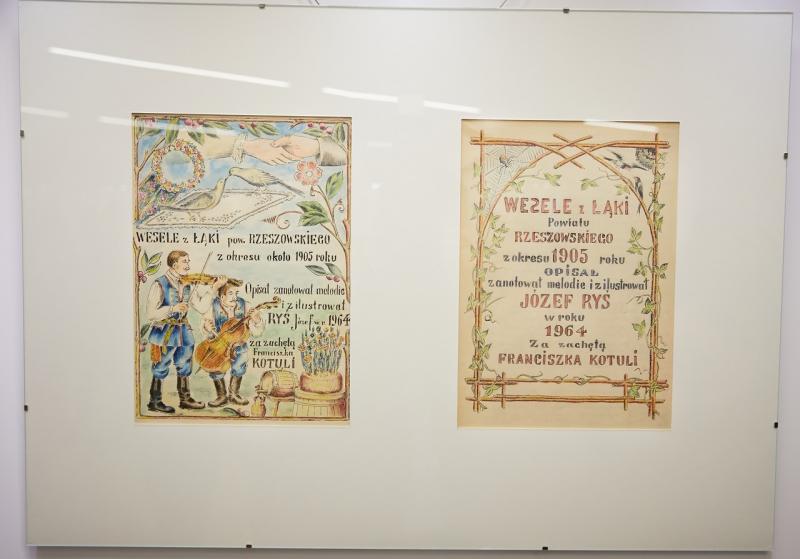 WESELE z ŁĄKI pow. RZESZOWSKIEGO
z okresu około 1905 roku
Opisał zanotował melodie
i zilustrował
RYŚ Józef w r. 1964
za zachętą
Franciszka
KOTULI
WESELE z ŁĄKI
Powiatu
RZESZOWSKIEGO
z okresu 1905 roku
OPISAŁ
zanotował melodie i zilustrował
JÓZEF RYŚ
w roku
1964
Za zachętą
FRANCISZKA KOTULI